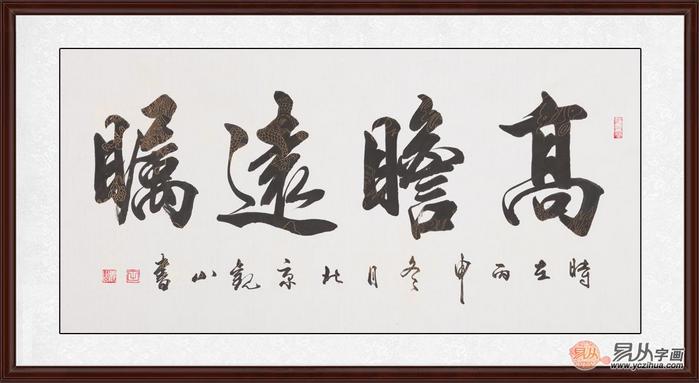 高瞻遠矚
時在丙申冬月北京觀山書
易从字画
www.yczihua.com